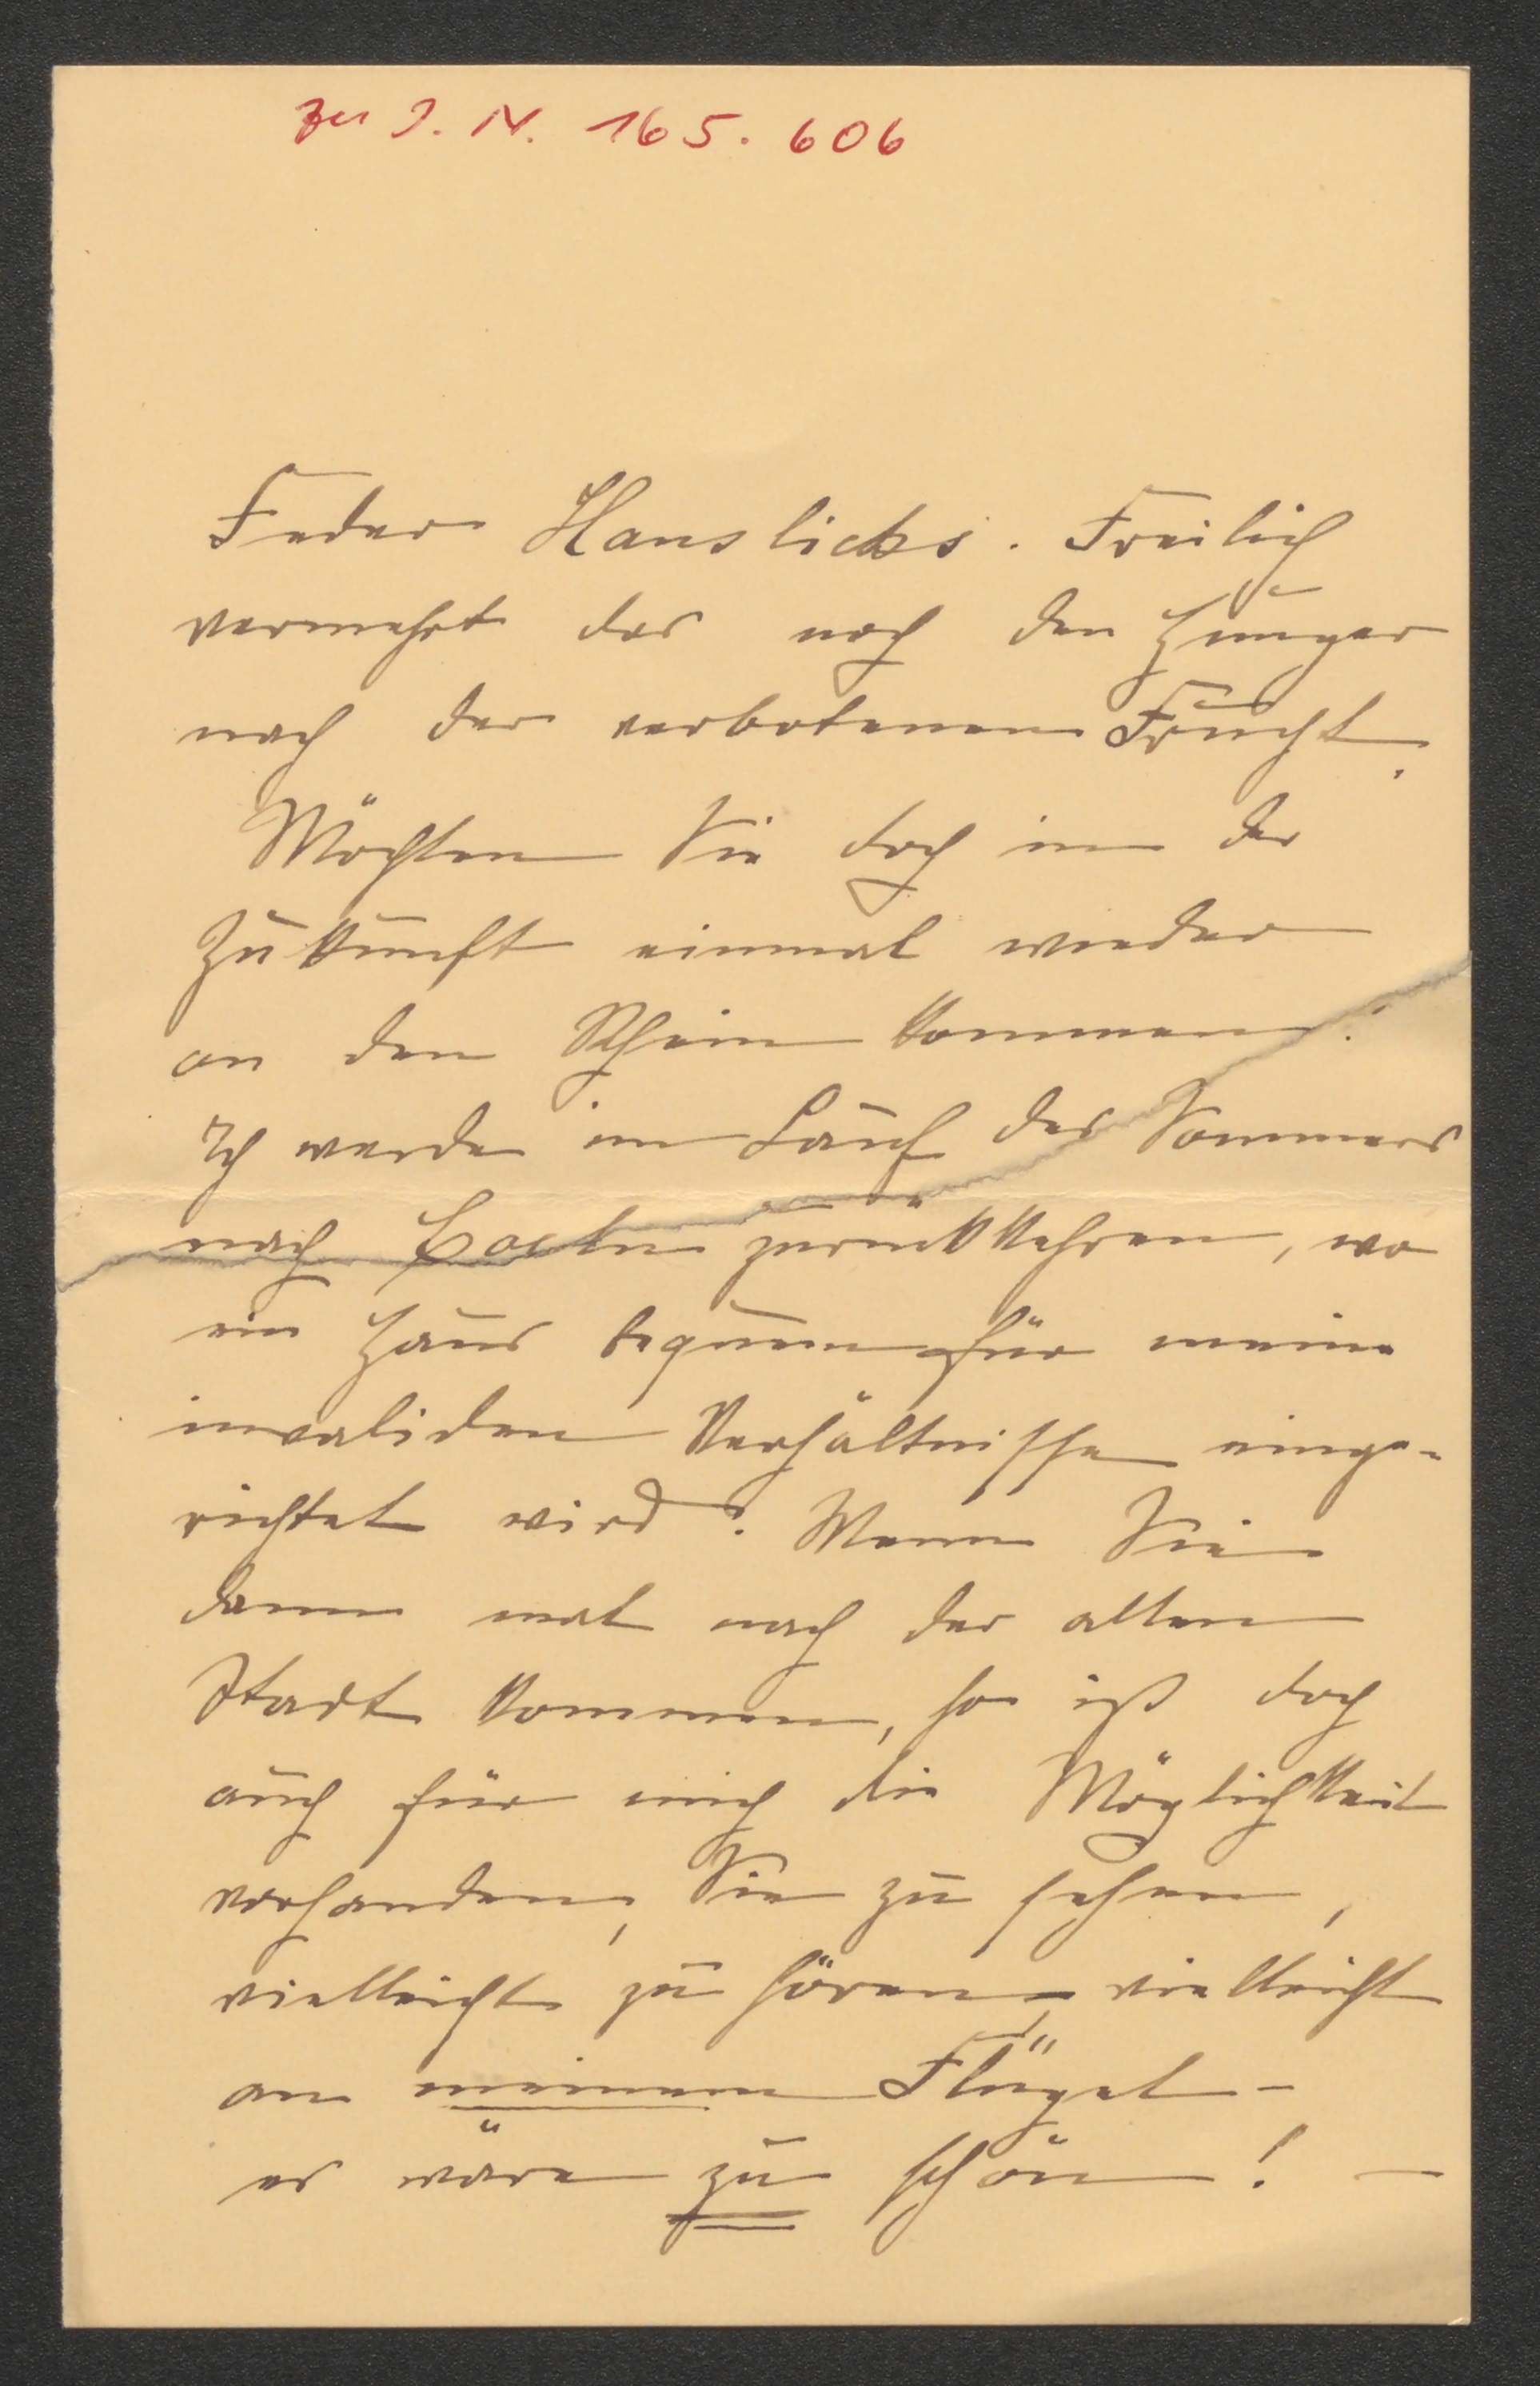 zu I. N. 165.606
Feder Hanslicks. Freilich
vermehrt das noch den Hunger
nach der verbotenen Frucht.
Möchten Sie doch in der
Zukunft einmal wieder
an den Rhein kommen!
Ich werde im Lauf des Sommers
nach Coeln zurückkehren, wo
ein Haus bequem für meine
invaliden Verhältnisse einge-
richtet wird. Wenn Sie
dann mal nach der alten
Stadt kommen, so ist doch
auch für mich die Möglichkeit
vorhanden, Sie zu sehen,
vielleicht zu hören, vielleicht
an meinem Flügel -
es wäre zu schön! —